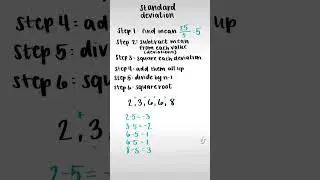 standard
deviation
step 1: find mean 25/5 = 5
step 2: subtract mean
from each value
(deviations)
step 3: square each deviation
step 4: add them all up
step 5: divide by n-1
step 6: square root
2, 3, 6, 6, 8
2-5=-3
3-5=-2
6-5=1
6-5=1
8-5=3
step 4: a
step 5: divi
step 6: squa
2, 3
all up
n-1
root
, 8